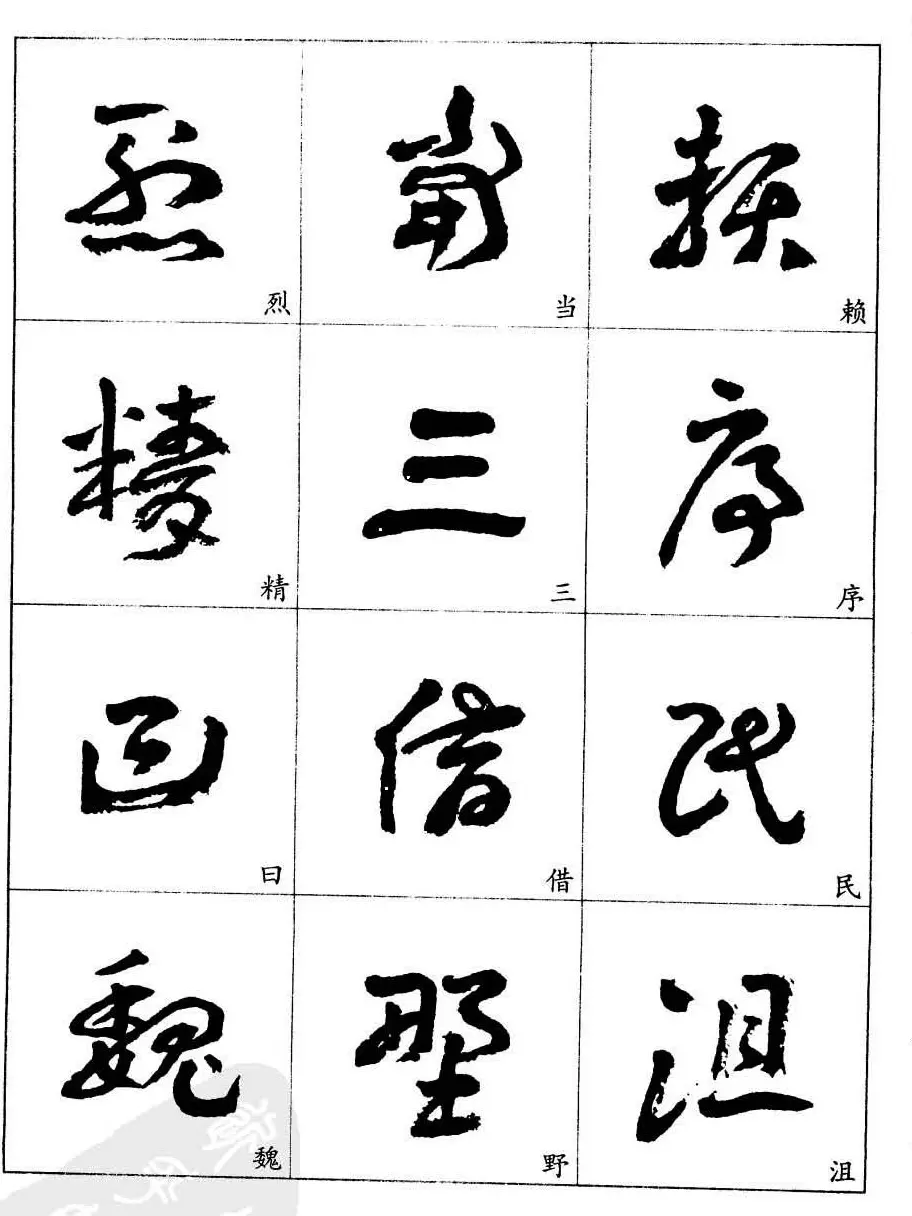 烈 当 赖
精 三 序
曰 借 民
魏 野 沮